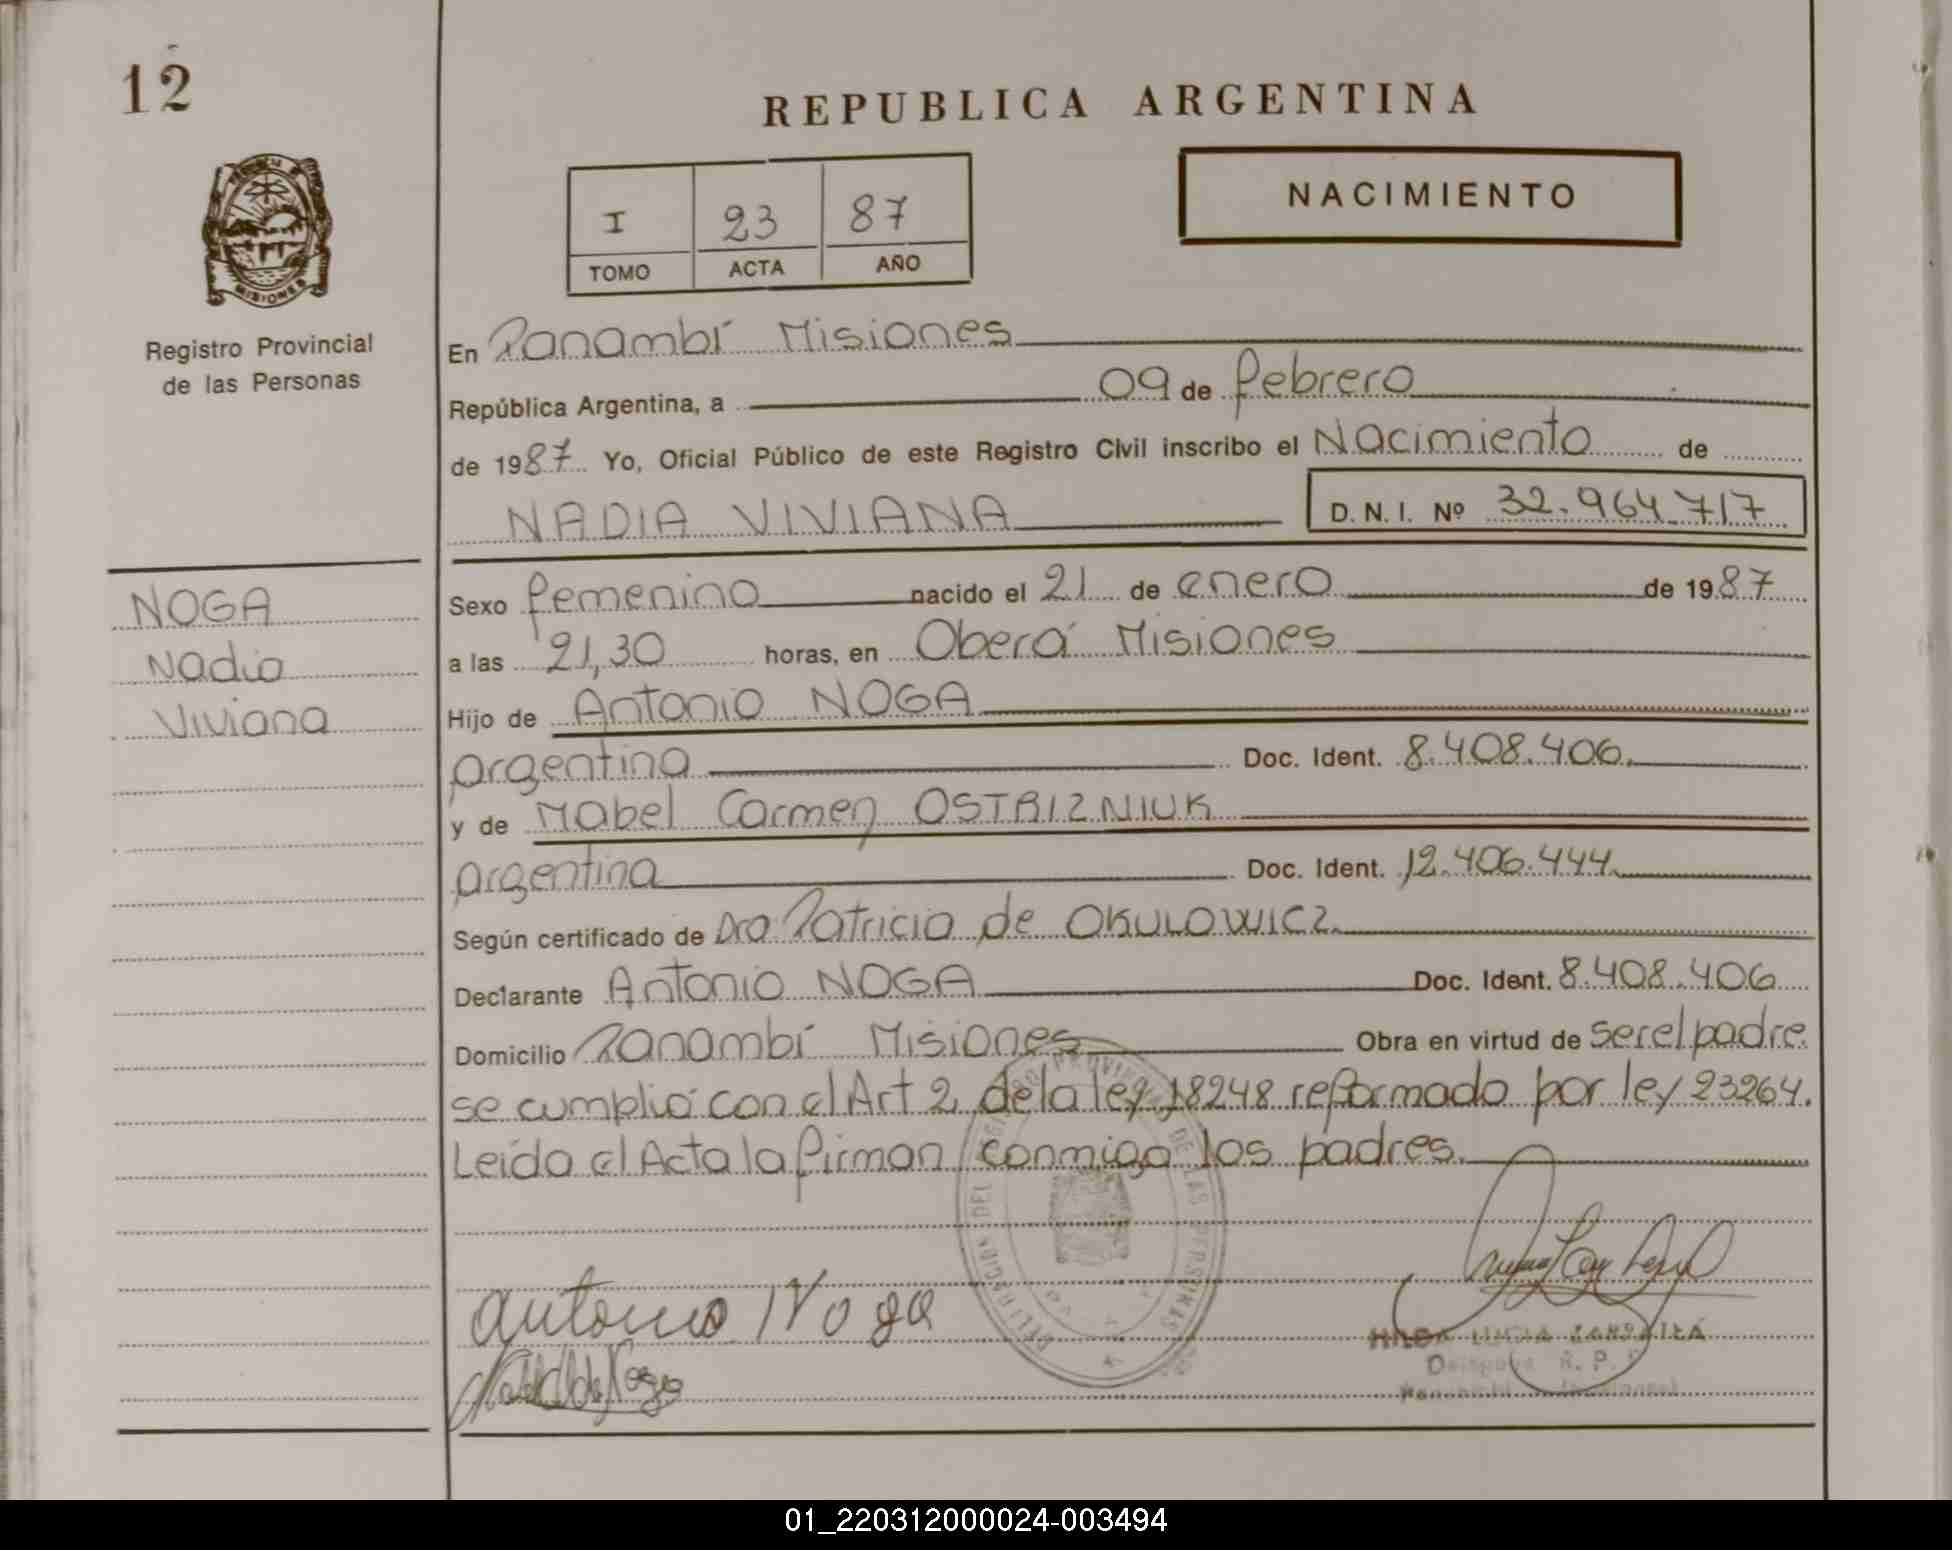 12
REPUBLICA ARGENTINA
NACIMIENTO
I 23 87
TOMO ACTA AÑO
MISIONES
Registro Provincial
de las Personas
En Panambí Misiones
República Argentina, a 09 de febrero
de 1987 Yo, Oficial Público de este Registro Civil inscribo el Nacimiento de
NADIA VIVIANA D. N. I. Nº 32.964.717
NOGA
Nadia
Viviana
Sexo femenino nacido el 21 de enero de 1987
a las 21,30 horas, en Oberá Misiones
Hijo de Antonio NOGA
argentina Doc. Ident. 8.408.406.
y de Mabel Carmen OSTRIZNIUK
argentina Doc. Ident. 12.406.444.
Según certificado de Dra Patricia de OKULOWICZ.
Declarante Antonio NOGA Doc. Ident. 8.408.406
Domicilio Panambí Misiones Obra en virtud de ser el padre
se cumplió con el Art 2 de la ley 18248 reformado por ley 23264.
Leída el Acta la firman conmigo los padres.
DELEGACION DEL REGISTRO PROVINCIAL DE LAS PERSONAS
Antonio Noga
LUCIA
R. P.
01_220312000024-003494